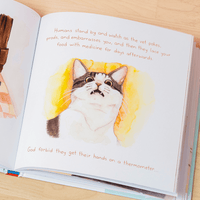 Humans stand by and watch as the vet pokes,
prods, and embarrasses you, and then they lace your
food with medicine for days afterwards.
God forbid they get their hands on a thermometer.